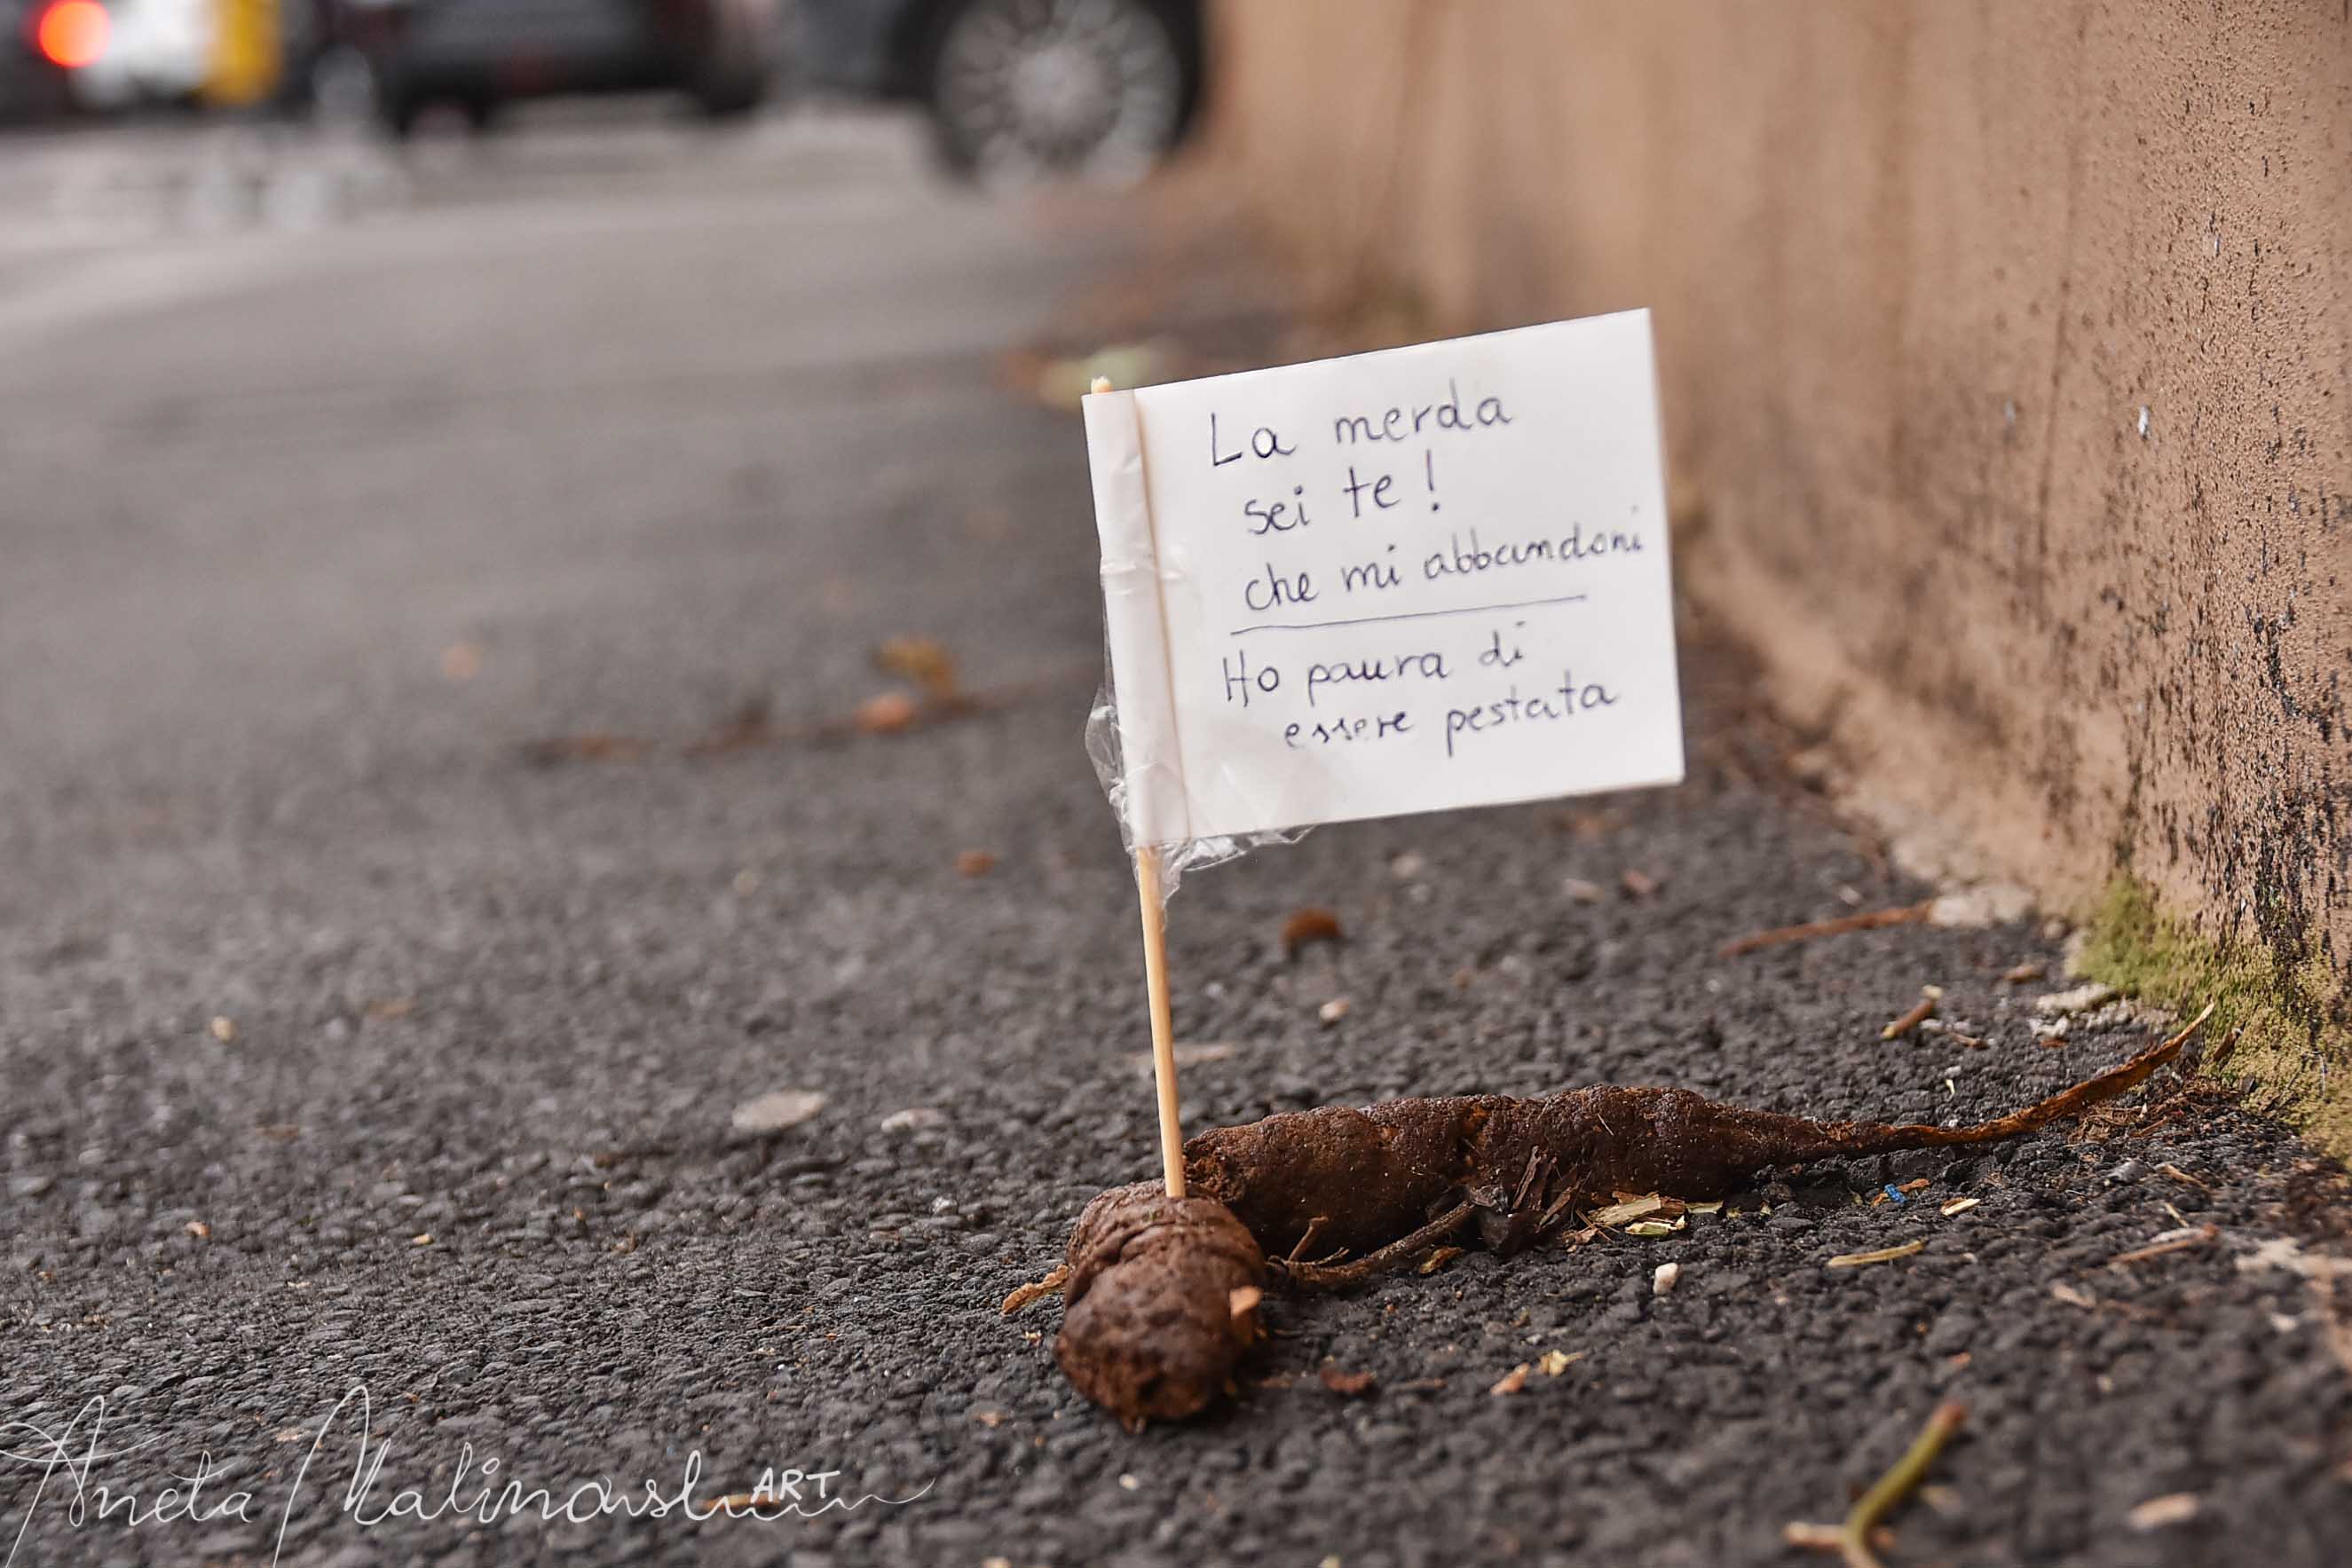 La merda
sei te!
che mi abbandoni
Ho paura di
essere pestata
Aneta Malinowska ART